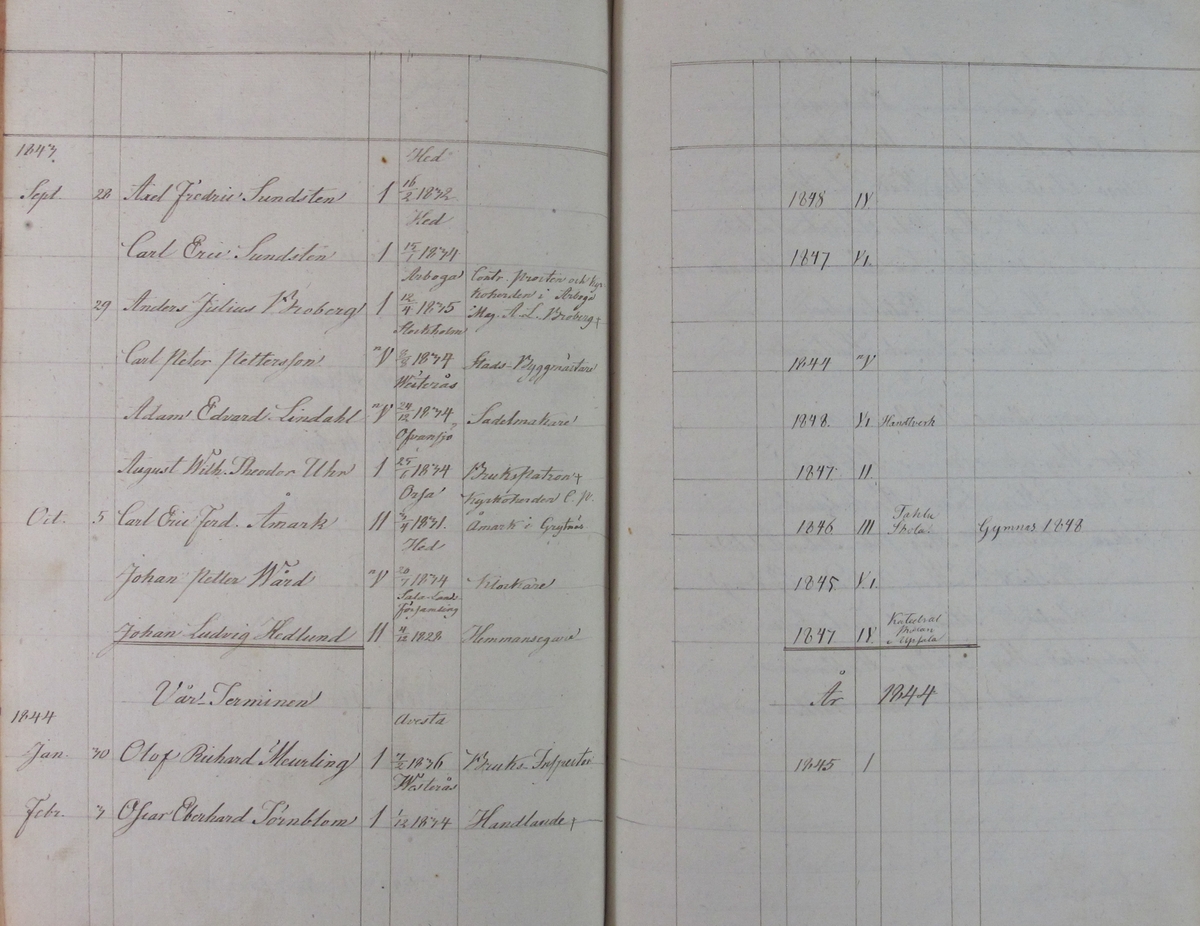 1843.
Hed
Sept. 28 Axel Fredric Sundsten I 16/2 1832 1848 IV
Hed
Carl Eric Sundsten I 15/1 1834 1847 VI.
Arboga Contr. Prosten och Kyr-
koherden i Arboga
29 Anders Julius Broberg I 12/4 1835 Mag. A. L. Broberg †
Stockholm
Carl Peter Pettersson nV 1834 Stads-Byggmästare 1844 nV
Westerås
Adam Edvard Lindahl nV 24/12 1834 Sadelmakare 1848. VI Handtverk
Ofvansjö
August Wilh. Theodor Uhr I 25/1 1834 Brukspatron † 1847 II.
Orsa Kyrkoherden C. P.
Oct. 5 Carl Eric Ferd. Åmark II 3/4 1831. Åmark i Grytnäs 1846 III Skola. Gymnas 1848
Hed
Johan Petter Wård nV 20/1 1834 Klockare 1845 VI.
Sala Lands
församling
Johan Ludvig Hedlund II 4/12 1828 Hemmansegare 1847 IV. Katedral
Skolan
Upsala
Vår-Terminen År 1844
1844 Avesta
Jan. 30 Olof Richard Meurling I 7/2 1836 Bruks-Inspector 1845 I
Westerås
Febr. 3 Oscar Eberhard Törnblom I 1/12 1834 Handlande †